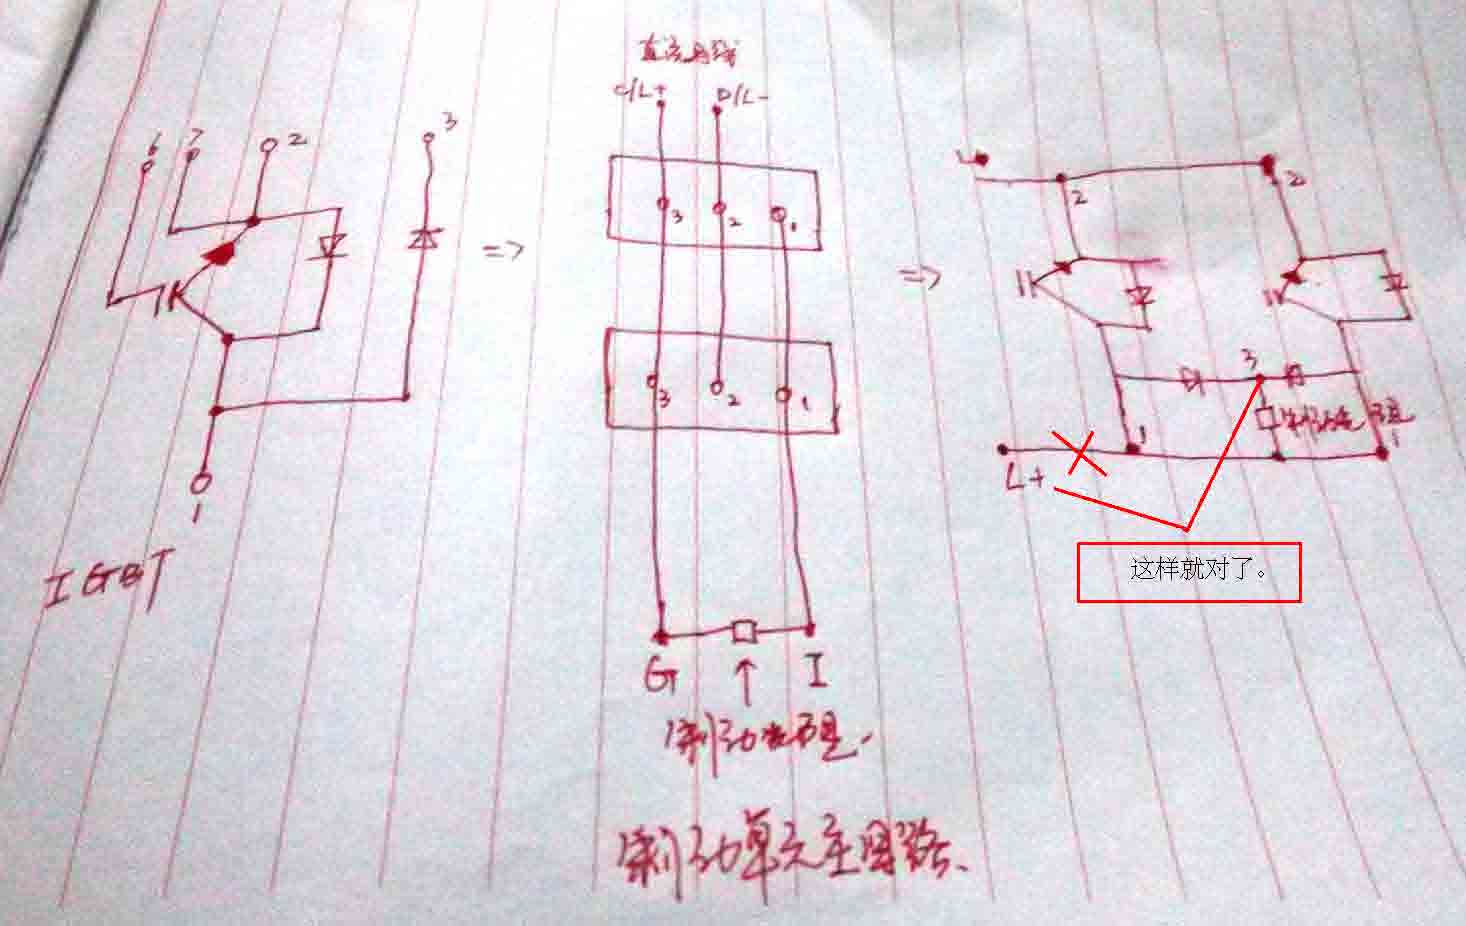 6
7
2
3
1
IGBT
=>
直流母线
C/L+
D/L-
3
2
1
3
2
1
G
I
制动电阻.
制动单元主回路.
=>
L-
2
2
3
制动电阻
1
1
L+
这样就对了。